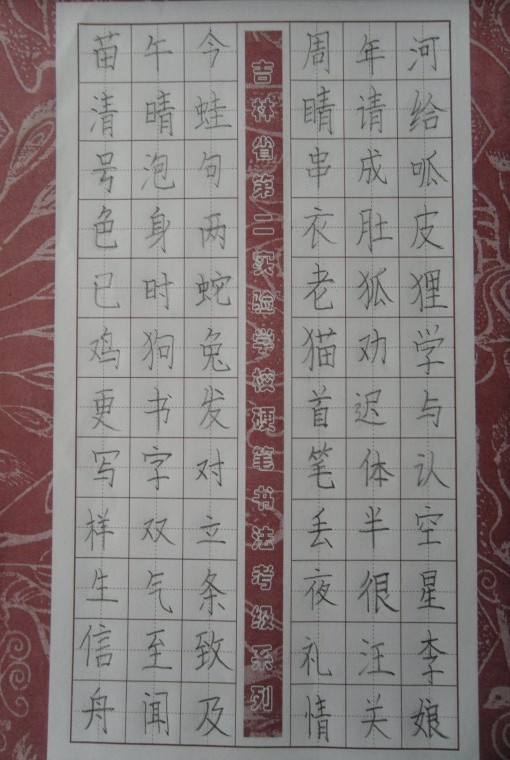 苗午今
清晴蛙
号泡句
色身两
已时蛇
鸡狗兔
更书发
写字对
样双立
生气条
信至致
舟闻及
吉林省第二实验学校硬笔书法考级系列
周年河
睛请给
串成呱
衣肚皮
老狐狸
猫劝学
首迟与
笔体认
丢半空
夜很星
礼汪李
情关娘